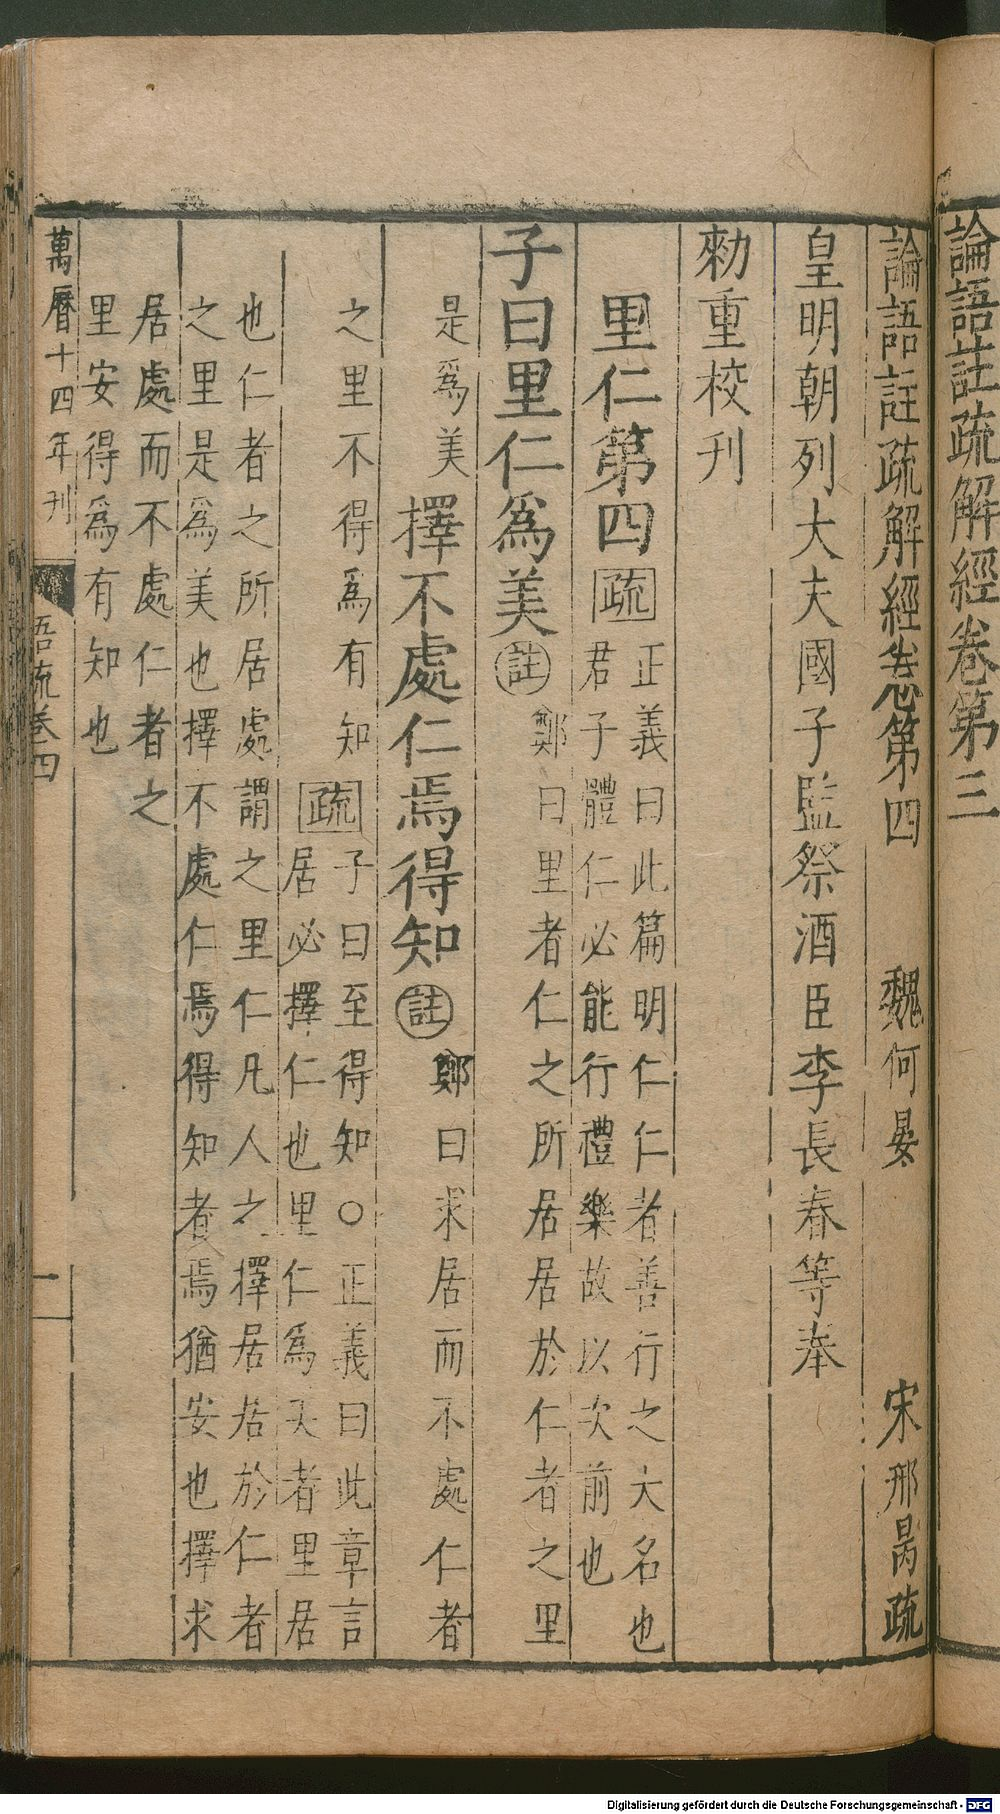 論語註疏解經卷第三
論語註疏解經卷第四 魏何晏 宋邢昺疏
皇明朝列大夫國子監祭酒臣李長春等奉
勑重校刊
里仁第四 疏 正義曰此篇明仁仁者善行之大名也
君子體仁必能行禮樂故以次前也
子曰里仁爲美 註 鄭曰里者仁之所居居於仁者之里
是爲美 擇不處仁焉得知 註 鄭曰求居而不處仁者
之里不得爲有知 疏 子曰至得知○正義曰此章言
居必擇仁也里仁爲美者里居
也仁者之所居處謂之里仁凡人之擇居居於仁者
之里是爲美也擇不處仁焉得知者焉猶安也擇求
居處而不處仁者之
里安得爲有知也
萬曆十四年刊
語疏卷四
一
Digitalisierung gefördert durch die Deutsche Forschungsgemeinschaft - DFG